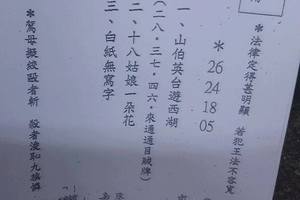 ＊法律定得甚明顯　若犯王法不容寬
＊26 24 18 05
一、山伯英台遊西湖
（二八．三七．四六．來通通目賊牌）
二、十八姑娘一朵花
三、白紙無寫字
＊駡母擬絞毆者斬　殺者凌恥九族